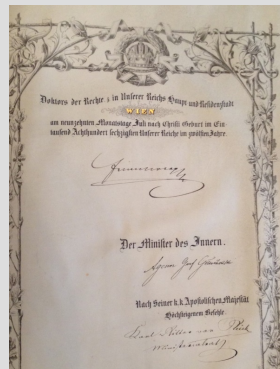 Doktors der Rechte; in Unserer Reichs Haupt und Residenzstadt
WIEN
am neunzehnten Monatstage Juli nach Christi Geburt im Ein
tausend Achthundert sechzigsten Unserer Reiche im zwölften Jahre.
Der Minister des Innern.
Nach Seiner k. k. Apostolischen Majestät
Höchsteigenem Befehle.